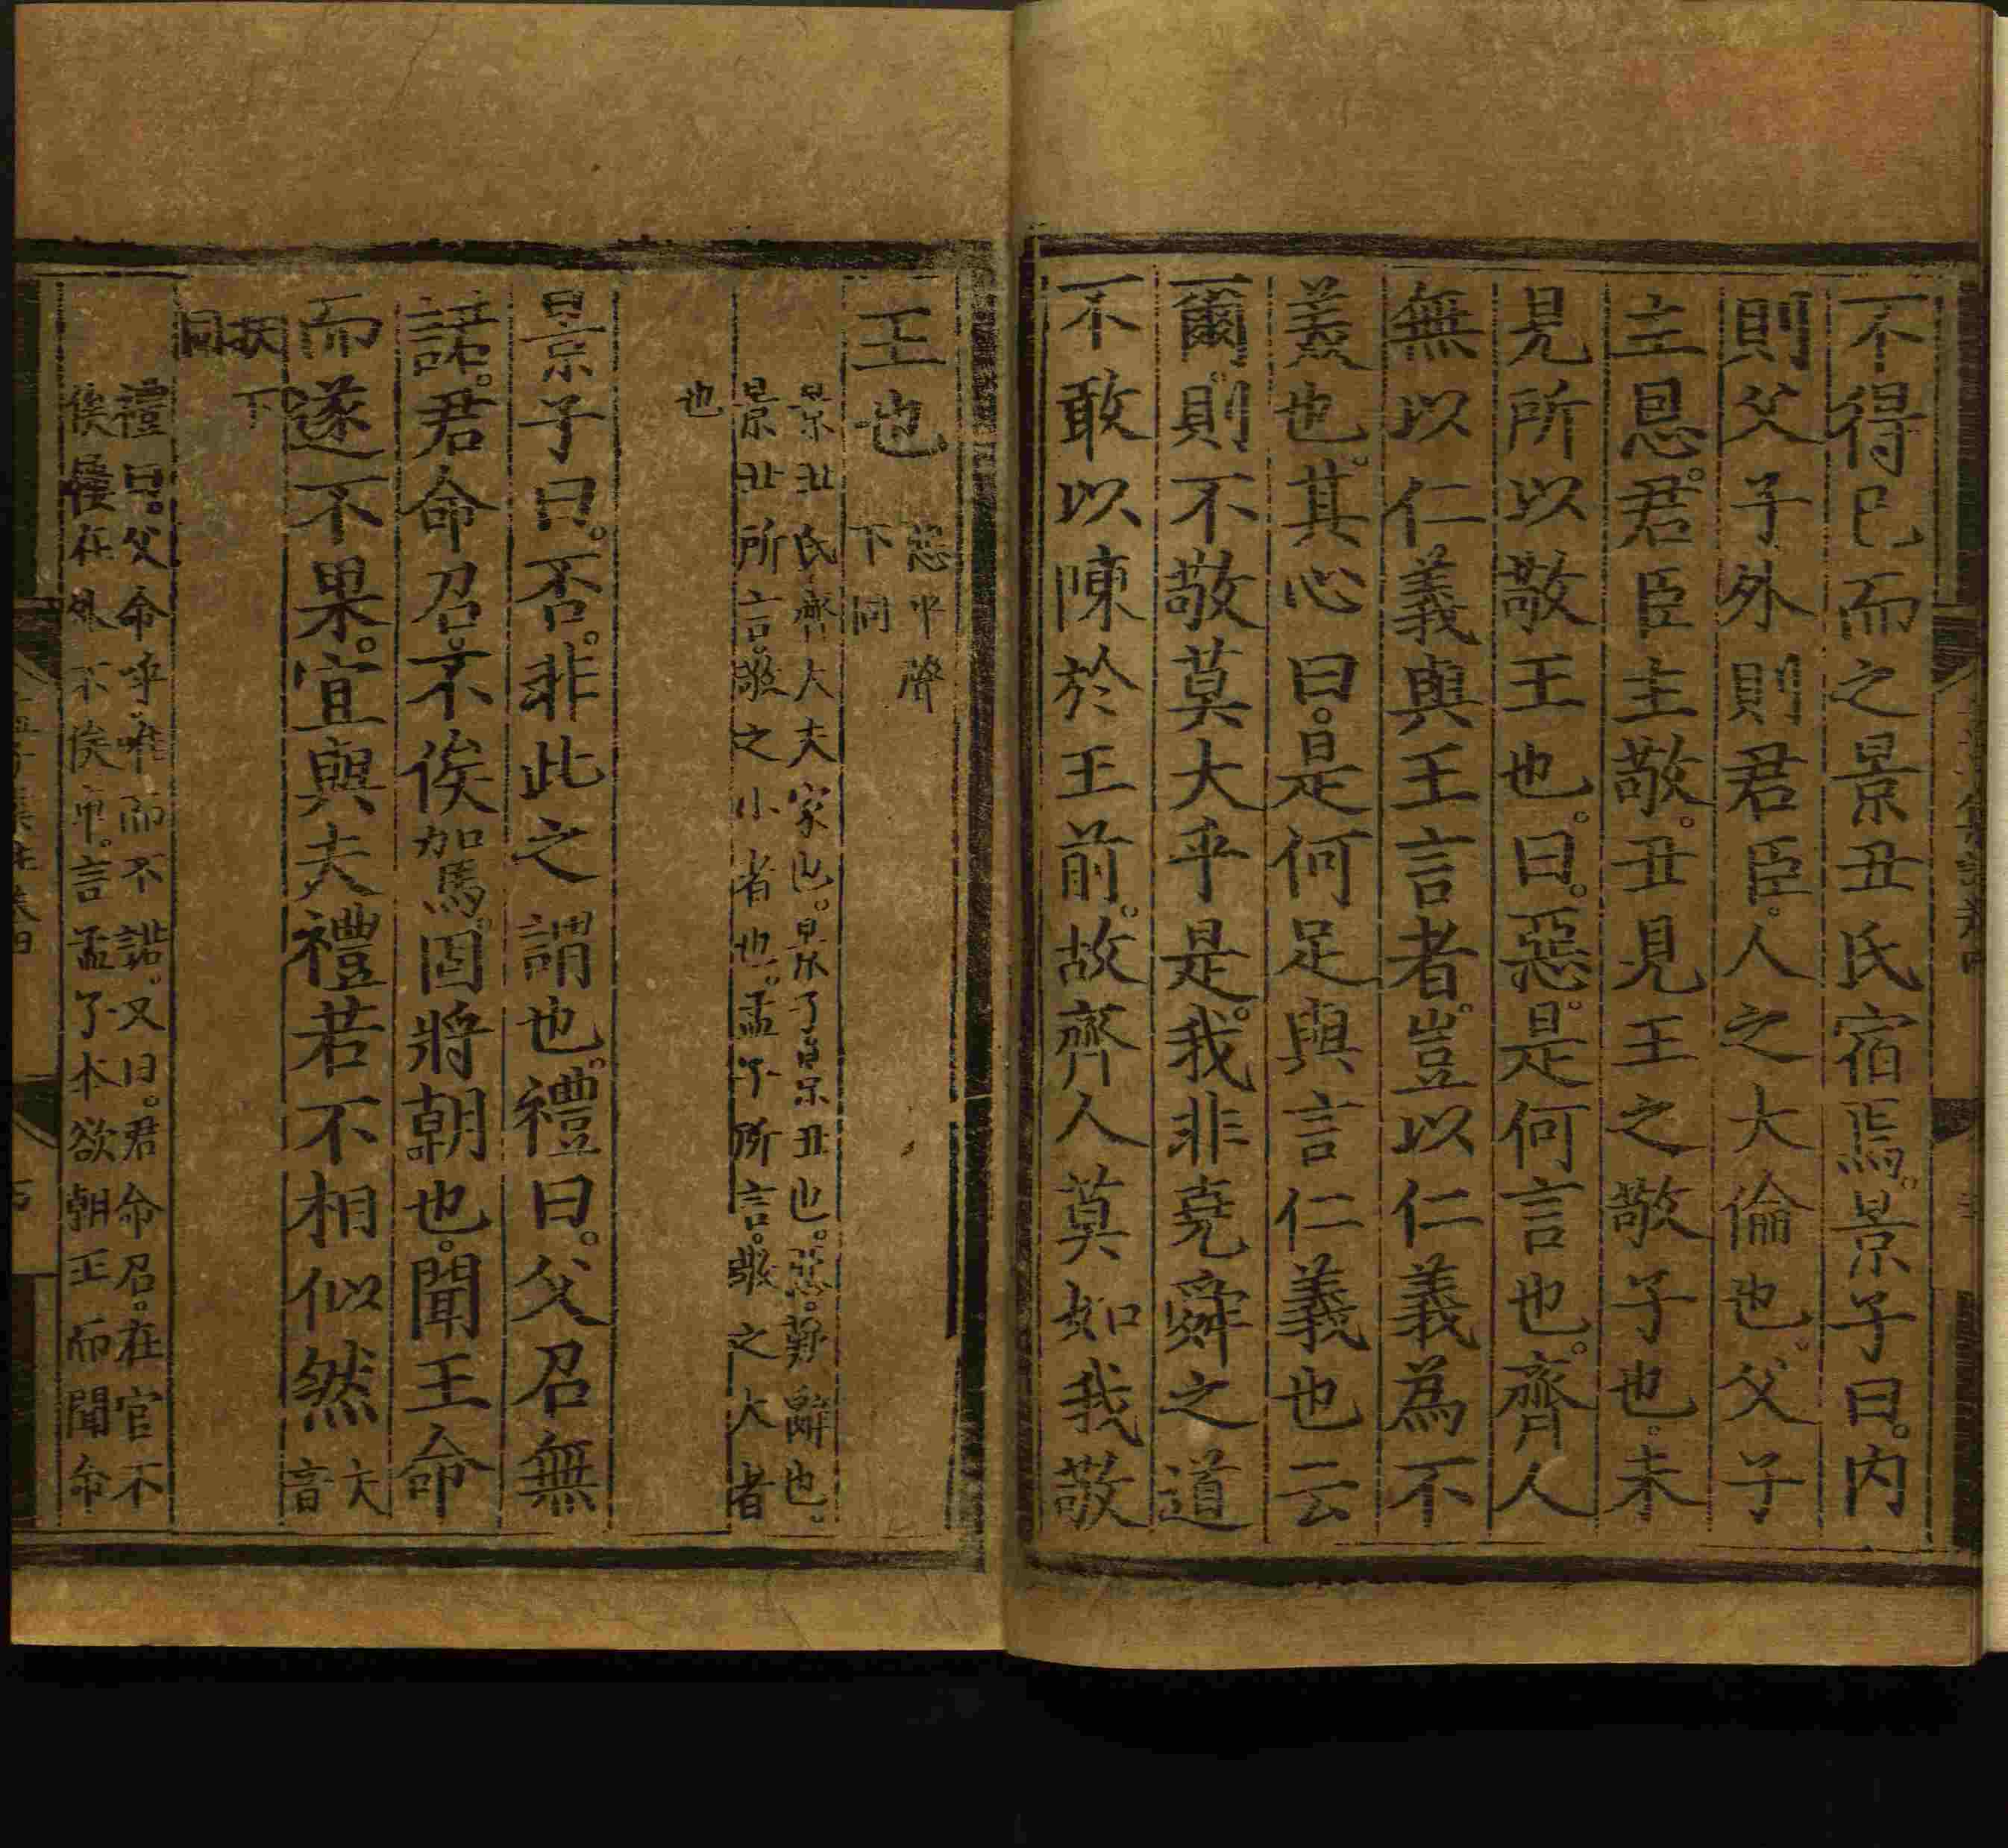 不得已而之景丑氏宿焉。景子曰。內
則父子外則君臣。人之大倫也。父子
主恩。君臣主敬。丑見王之敬子也。未
見所以敬王也。曰。惡。是何言也。齊人
無以仁義與王言者。豈以仁義為不
美也。其心曰。是何足與言仁義也云
爾。則不敬莫大乎是。我非堯舜之道
不敢以陳於王前。故齊人莫如我敬
王也
惡平聲
下同
景丑氏齊大夫家也。景子景丑也。惡。歎辭也。
景丑所言。敬之小者也。孟子所言。敬之大者
也
景子曰。否。非此之謂也。禮曰。父召無
諾。君命召。不俟駕。固將朝也。聞王命
而遂不果。宜與夫禮若不相似然
夫
音
扶下
同
禮曰。父命呼。唯而不諾。又曰。君命召。在官不
俟屨。在外不俟車。言孟子本欲朝王而聞命